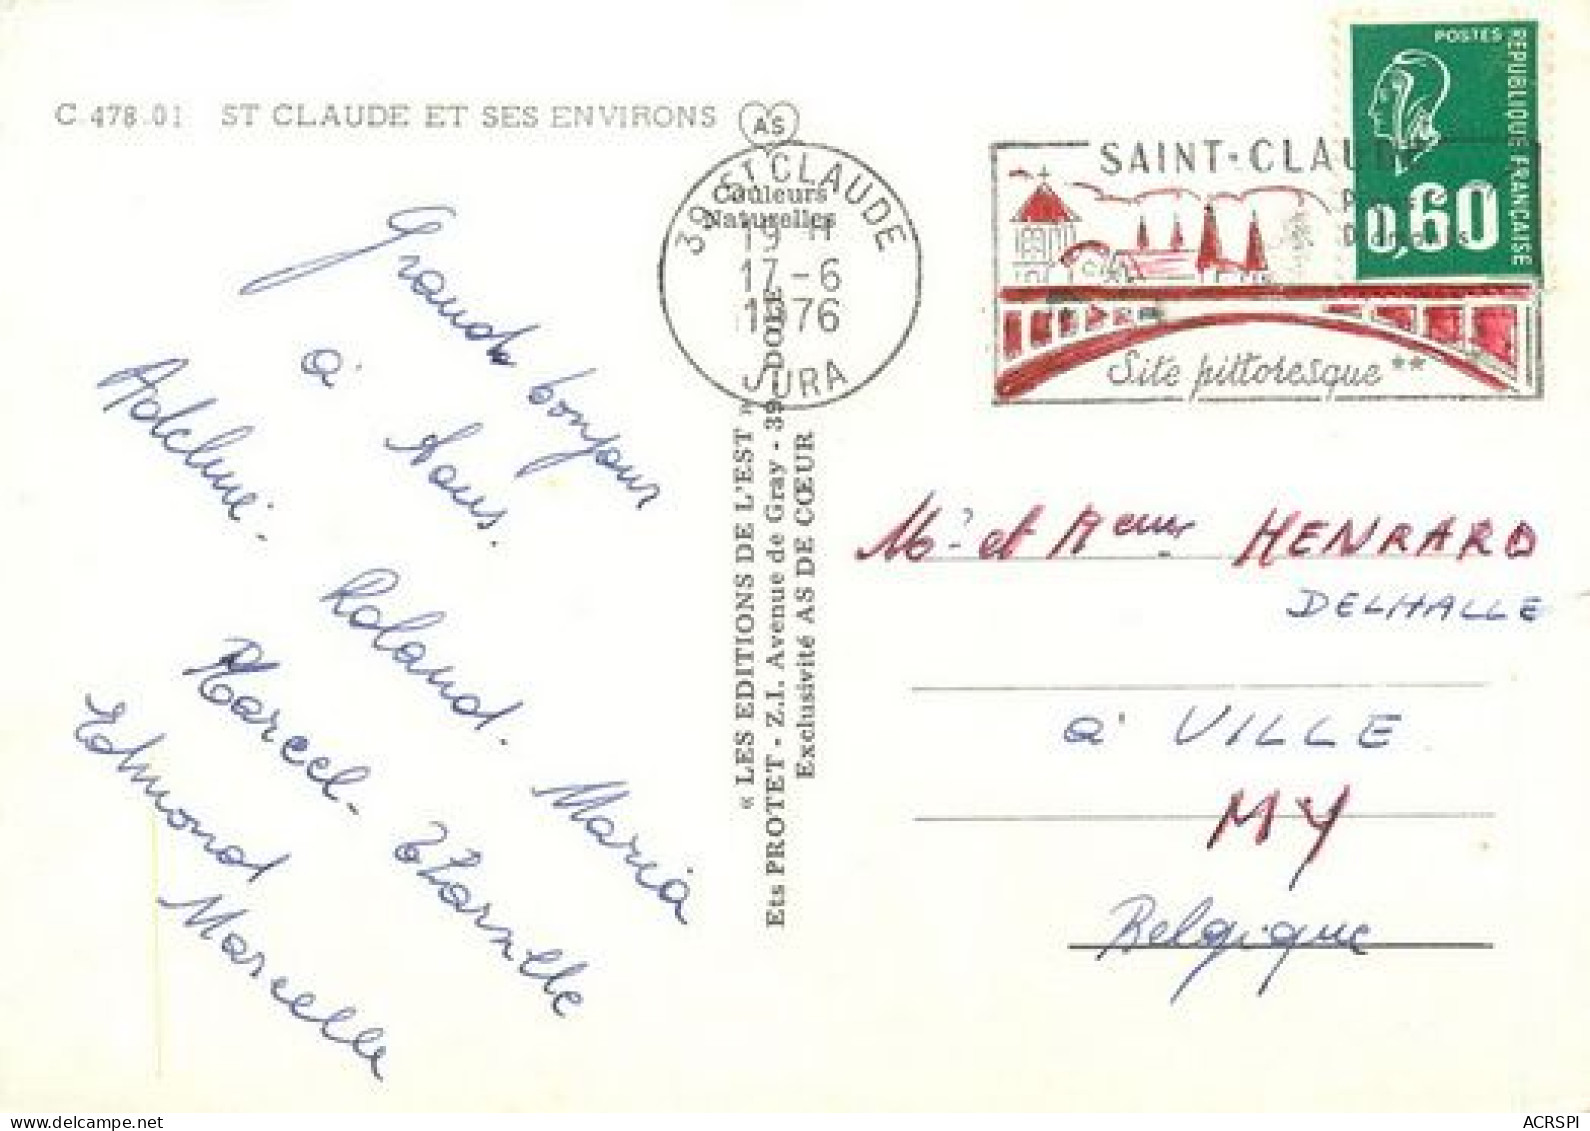 C 478.01 ST CLAUDE ET SES ENVIRONS
AS
Couleurs
Naturelles
39 ST CLAUDE
19 H
17-6
1976
JURA
SAINT-CLAUDE
Site pittoresque **
POSTES
REPUBLIQUE FRANÇAISE
0,60
« LES EDITIONS DE L'EST »
Ets PROTET - Z.I. Avenue de Gray - 39 DOLE
Exclusivité AS DE CŒUR
Grands bonjour
à Nous.
Adeline - Roland. Maria
Marcel -
Edmond
Marcelle
Mr et HENRARD
DELHALLE
à VILLE
MY
Belgique
ACRSPI